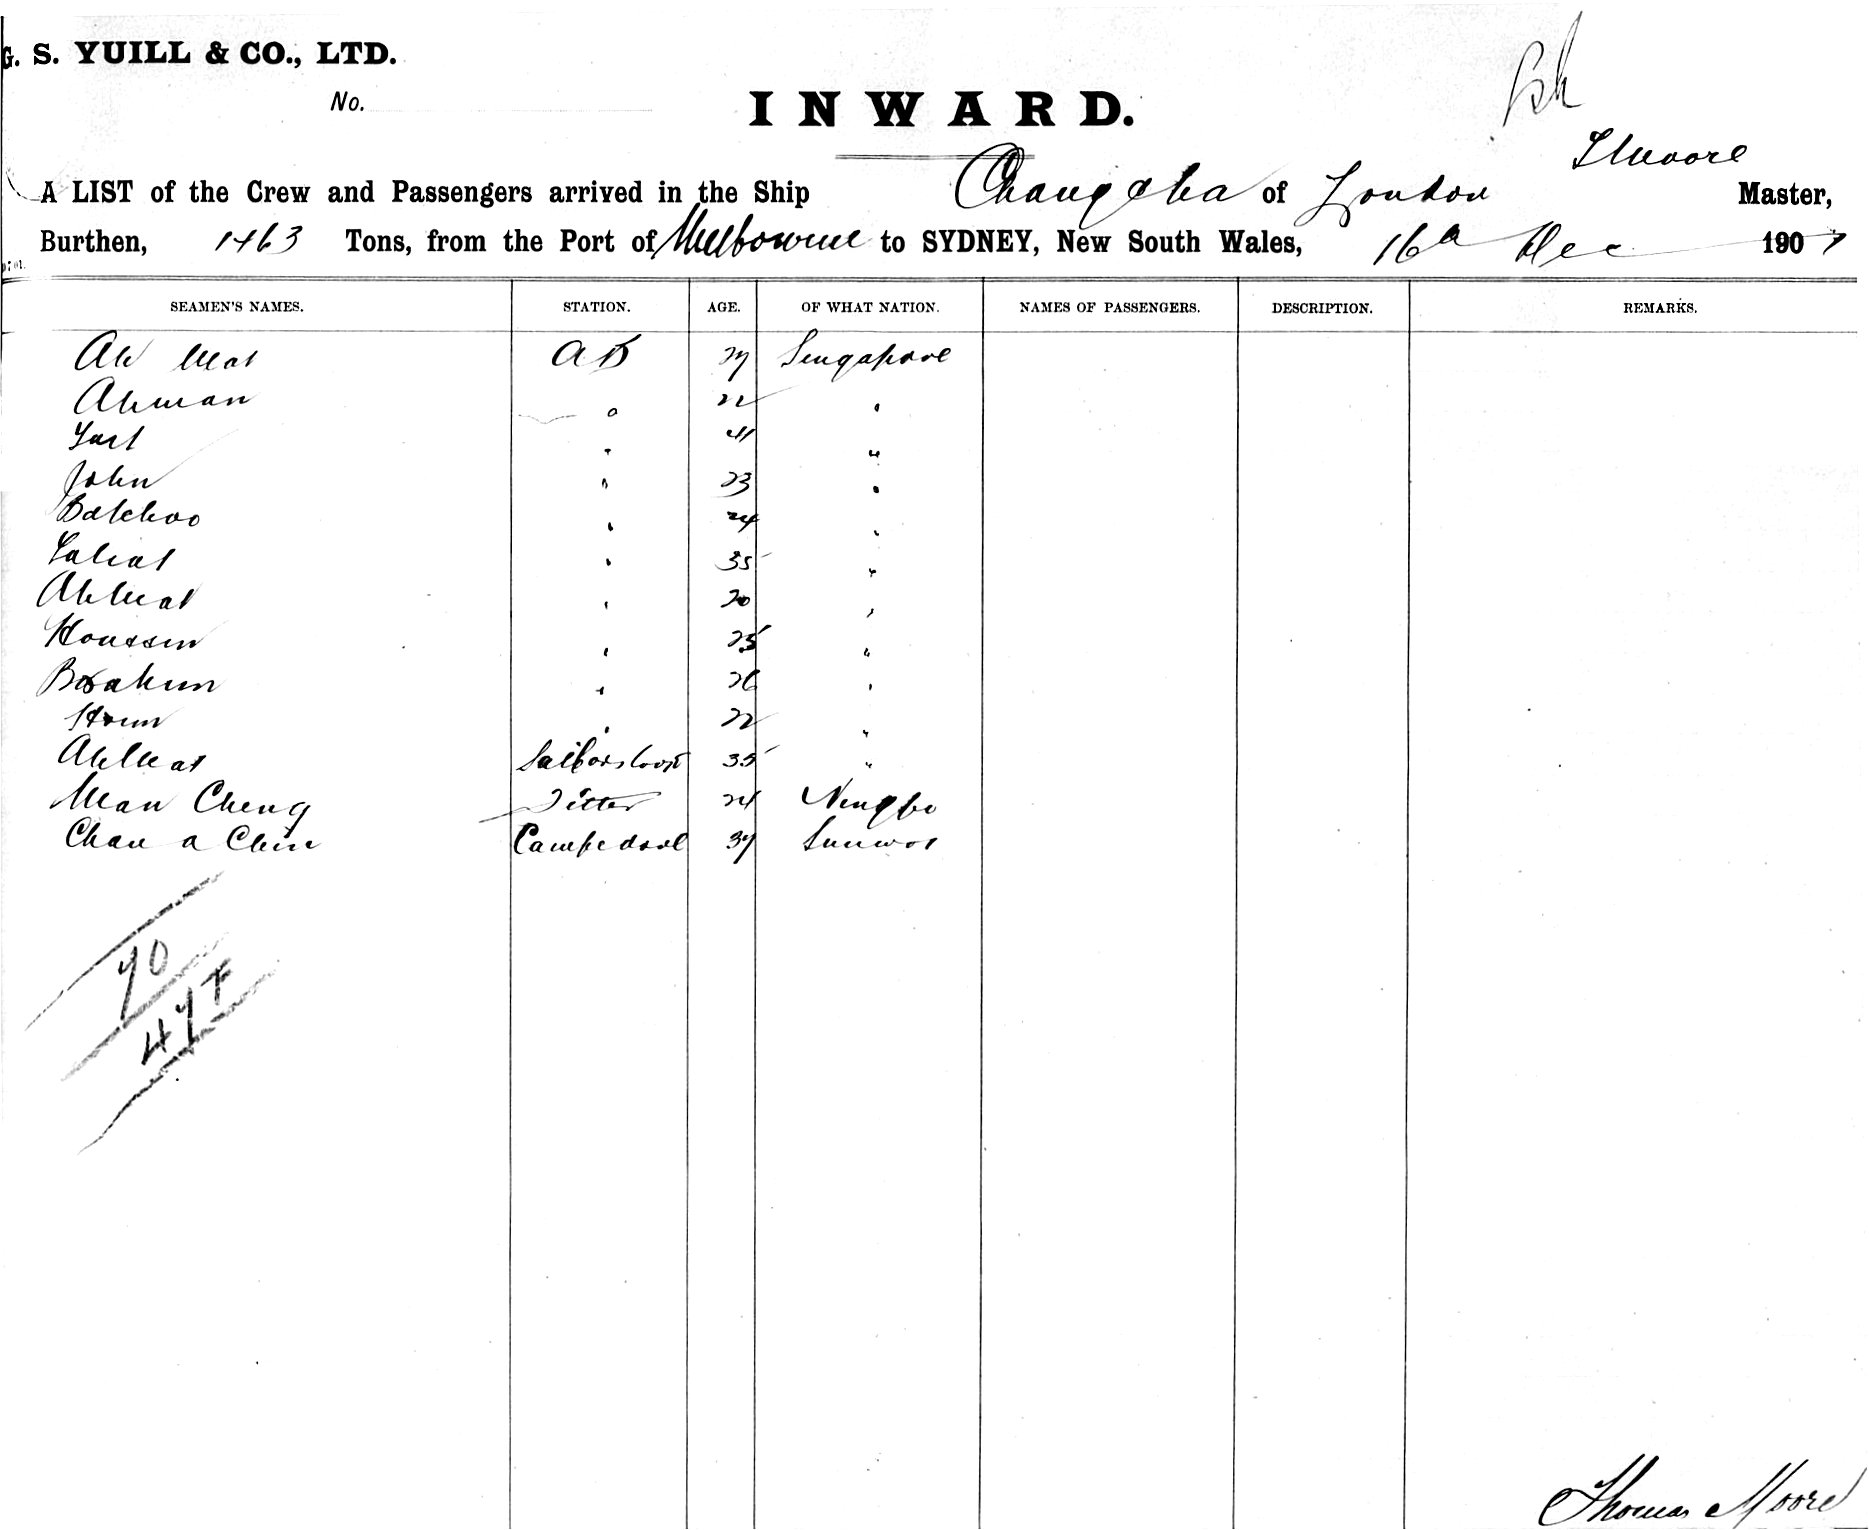 G. S. YUILL & CO., LTD.
No.
INWARD.
T Moore
A LIST of the Crew and Passengers arrived in the Ship Changsha of London Master,
Burthen, 1463 Tons, from the Port of Melbourne to SYDNEY, New South Wales, 16th Dec 1907
SEAMEN'S NAMES. STATION. AGE. OF WHAT NATION. NAMES OF PASSENGERS. DESCRIPTION. REMARKS.
Ah Mat AB 27 Singapore
Ahman " 22 "
" 41 "
John " 23 "
Batchoo " 24 "
" 35 "
Ah Mat " 20 "
Houssin " 25 "
Brahim " 26 "
" 22 "
Ah Mat Sailors Cook 35 "
Man Cheng Fitter 24 Ningpo
Chan a 37
70
47
Thomas Moore